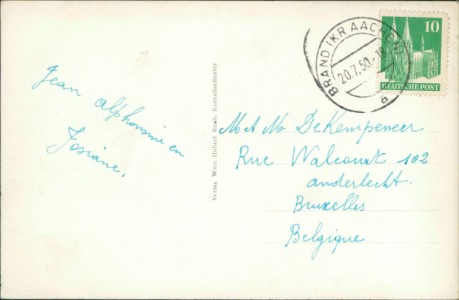 Jean Alphonsine en
Josiane.
BRAND (KR AACHEN)
20.7.50.-18
a
10
DEUTSCHE POST
M et Mr DeKempeneer
Rue Walcourt 102
anderlecht.
Bruxelles
Belgique
Verlag Wwe. Hubert